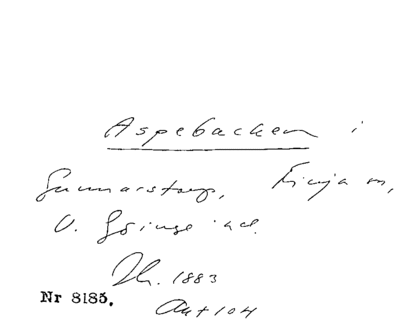 Aspebacken i
Gunnarstorp, Finja sn,
V. Göinge hd.
Th. 1883
Nr 8185. Akt 104